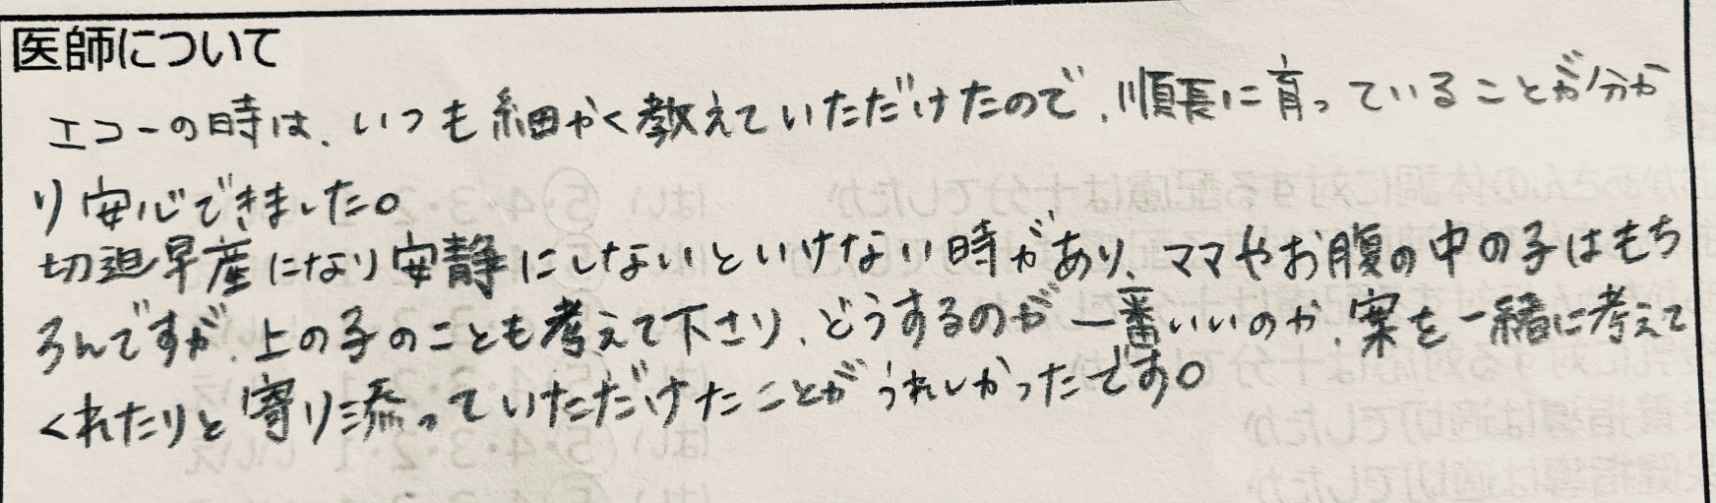 医師について
エコーの時は、いつも細かく教えていただけたので、順調に育っていることが分か
り安心できました。
切迫早産になり安静にしないといけない時があり、ママやお腹の中の子はもち
ろんですが、上の子のことも考えて下さり、どうするのが一番いいのか、案を一緒に考えて
くれたりと寄り添っていただけたことがうれしかったです。